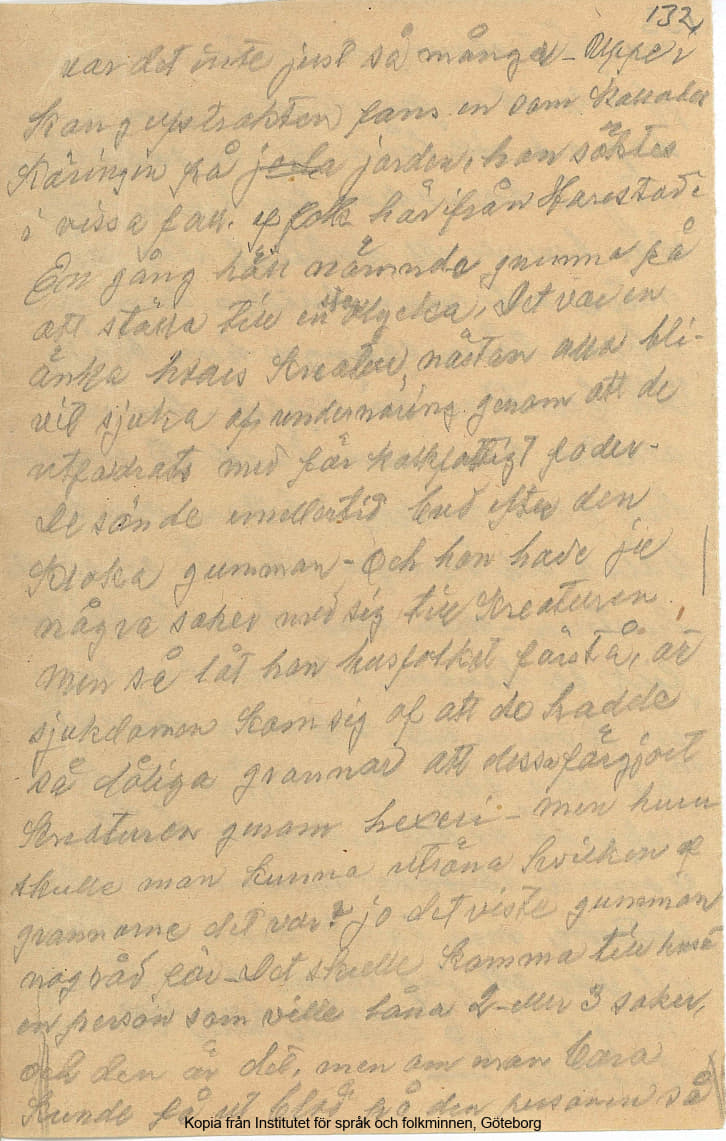 132
var det inte just så många - Uppe i
Kongelfstrakten fans en som kallades
Käringen på jola jorden, hon söktes
i vissa fall af folk härifrån Harestad.
En gång höll nämnda gumma på
att ställa till en stor olycka, Det var en
änka hvars Kreatur nästan alla bli-
vit sjuka af undernäring genom att de
utfodrats med för kalkfattigt foder.
De sände emellertid bud efter den
Kloka gumman - och hon hade ju
några saker med sig till Kreaturen
men så lät hon husfolket förstå, att
sjukdomen kom sig af att de hadde
så dåliga grannar att dessa förgjort
Kreaturen genom hexeri - men huru
skulle man kunna utröna hvilken af
grannarne det var? jo det viste gumman
nog råd för - Det skulle komma till huset
en person som ville låna 2 eller 3 saker,
och den är det, men om man bara
kunde få ut blod på den personen så
Kopia från Institutet för språk och folkminnen, Göteborg